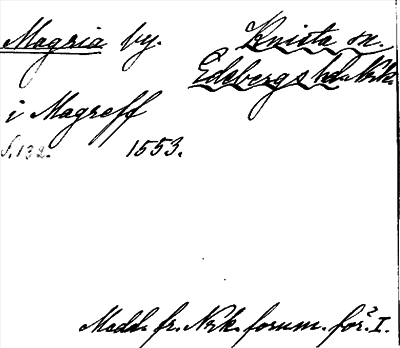 Magria by. Knista sn.
Edsbergs hd Nrk.
i Magreff
S. 132. 1553.
Medd. fr. Nrk. fornm. för. I.